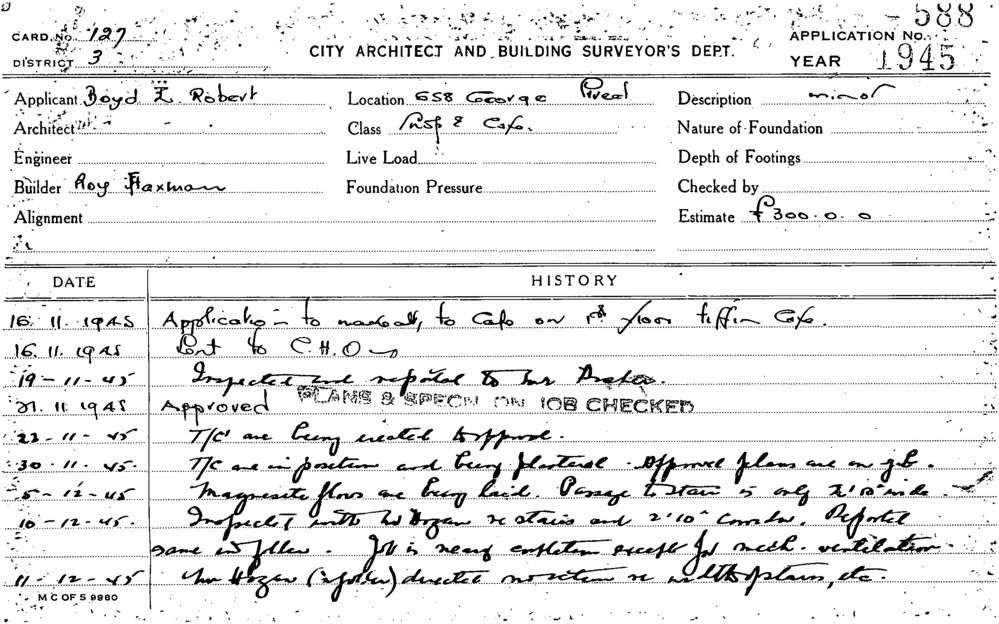 588
CARD No. 127
APPLICATION No.
DISTRICT 3
CITY ARCHITECT AND BUILDING SURVEYOR'S DEPT.
YEAR 1945
Applicant Boyd E. Robert
Location 658 George Street
Description minor
Architect
Class Shop & Cafe.
Nature of Foundation
Engineer
Live Load
Depth of Footings
Builder Roy Flaxman
Foundation Pressure
Checked by
Alignment
Estimate £300.0.0
DATE
HISTORY
16.11.1945 Application to to Cafe on 1st floor tiffin Cafe.
16.11.1945 Sent to C.H.O
19-11-45 Inspected and reported to Mr
21.11.1945 Approved PLANS & SPECN ON JOB CHECKED
23-11-45 T/C are being erected to approval.
30-11-45. T/C are in position and being plastered. Approved plans are on job.
5-12-45 Magnesite floors are being laid. Passage to Stair is only 2'10" wide.
10-12-45. Inspected with Mr Hogan re stairs and 2'10" corridor. Reported
same in folder. Job is nearing completion except for mech. ventilation.
11-12-45 Mr Hogan (in folder) directed no action re width of stairs, etc.
M C OF S 9980